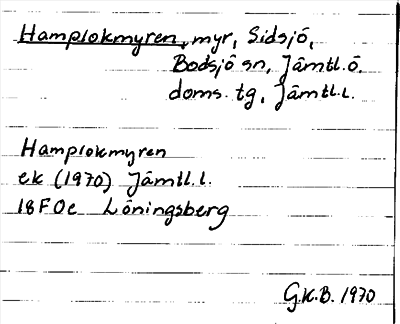 Hamplokmyren, myr, Sidsjö,
Bodsjö sn, Jämtl.ö.
doms. tg, Jämtl.l.
Hamplokmyren
ek (1970) Jämtl.l.
18F0e Löningsberg
G.K.B. 1970